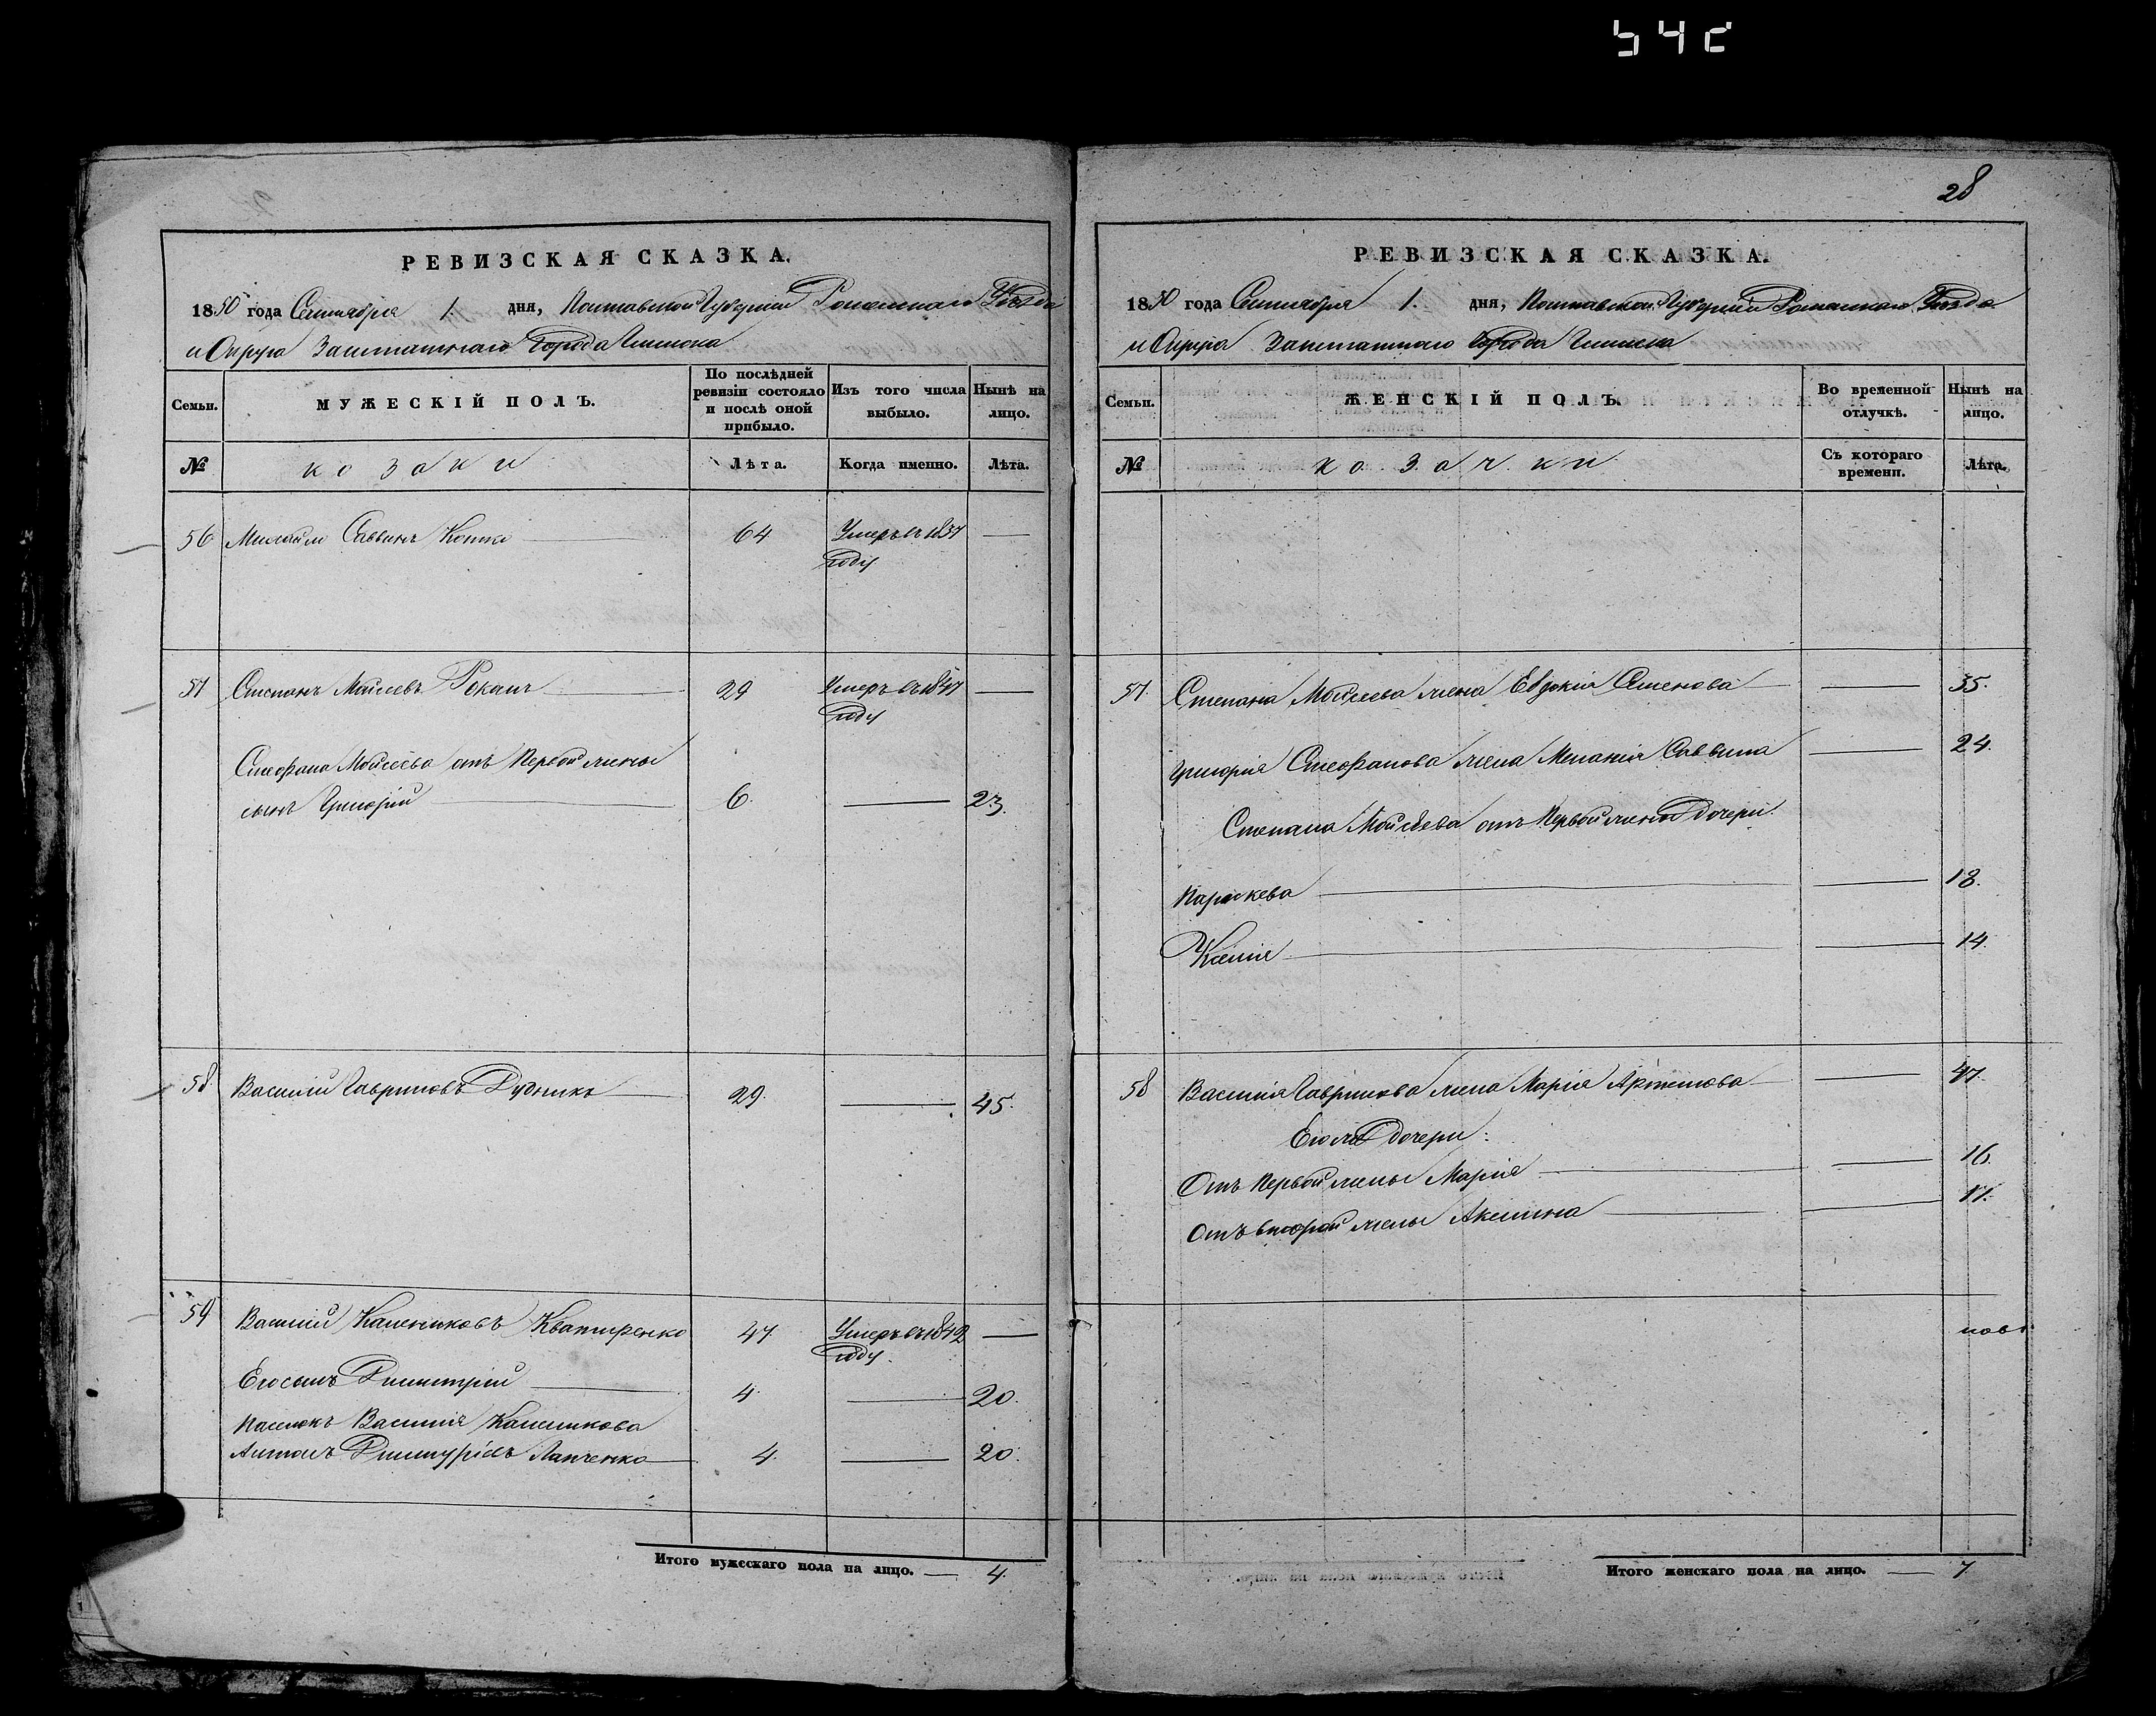 28
РЕВИЗСКАЯ СКАЗКА.
1850 года Сентября 1. дня, Полтавской Губернии Роменского Уѣзда
и Округа Заштатнаго Города Глинска
Семьи.
МУЖЕСКІЙ ПОЛЪ.
По послѣдней ревизіи состояло и послѣ оной прибыло.
Изъ того числа выбыло.
Нынѣ на лицо.
№
козаки
Лѣта.
Когда именно.
Лѣта.
56 Михайло Саввинъ 64 Умеръ въ 1837 —
году
57 Степанъ Моисеевъ 29 Умеръ въ 1847 —
году
Стефана Моисеева отъ Первой жены
сынъ Григорій 6. — 23.
58 Василій Гавриловъ Рудника 29. — 45.
59 Василій Калениковъ 47. Умеръ въ 1842 —
году.
Его сынъ Димитрій 4. — 20.
Пасынокъ Василія Каленикова
Антонъ 4. — 20.
Итого мужескаго пола на лицо. — 4.
РЕВИЗСКАЯ СКАЗКА.
1850 года Сентября 1. дня, Полтавской Губерніи Роменского Уѣзда
и Округа Заштатнаго Города Глинска
Семьи.
ЖЕНСКІЙ ПОЛЪ.
Во временной отлучкѣ.
Нынѣ на лицо.
№
козачки
Съ котораго времени.
Лѣта.
57. Степана Моисеева жена Евдокія Семенова — 35.
Григорія Стефанова жена Меланія Саввина — 24.
Степана Моисеева отъ Первой жены Дочери.
Параскева — 18.
Ксенія — 14.
58 Василія Гаврилова жена Марія Артемова — 47.
Его же Дочери:
Отъ Первой жены Марія — 16.
Отъ второй жены Акилина — 11.
Итого женскаго пола на лицо. — 7